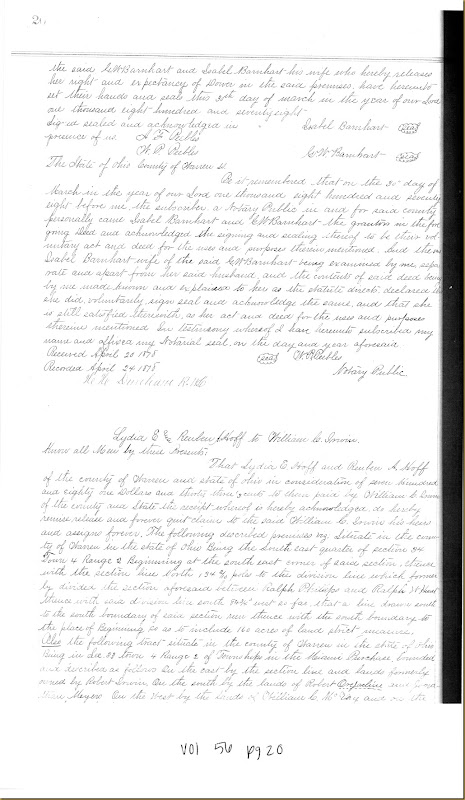 20
the said C W Barnhart and Isabel Barnhart his wife who hereby releases
her right and expectancy of Dower in the said premises, have hereunto
set their hands and seals this 30th day of March in the year of our Lord
one thousand eight hundred and seventy eight
Signed sealed and acknowledged in Isabel Barnhart seal
presence of us. A F Peebles
W. P. Peebles C W Barnhart seal
The State of Ohio County of Warren ss.
Be it remembered that on the 30th day of
March in the year of our Lord one thousand eight hundred and seventy
eight before me the subscriber a Notary Public in and for said county
personally came Isabel Barnhart and C W Barnhart the grantors in the fore
going Deed and acknowledged the signing and sealing thereof to be their vol
untary act and deed for the uses and purposes therein mentioned And the
Isabel Barnhart wife of the said C W Barnhart being examined by me sepa
rate and apart from her said husband, and the contents of said deed being
by me made known and explained to her as the statute directs declared that
she did voluntarily sign seal and acknowledge the same, and that she
is still satisfied therewith, as her act and deed for the uses and purposes
therein mentioned In testimony whereof I have hereunto subscribed my
name and affixed my Notarial seal, on the day and year aforesaid
Received April 20 1878 seal W P Peebles
Recorded April 24 1878 Notary Public
Lydia E & Reuben A Hoff to William C. Irwin.
Know all Men by these presents:
That Lydia E Hoff and Reuben A Hoff
of the county of Warren and state of Ohio in consideration of seven hundred
and eighty one Dollars and thirty three cents to them paid by William C Irwin
of the county and State the receipt whereof is hereby acknowledged do hereby
remise release and forever quit claim to the said William C. Irwin his heirs
and assigns forever. The following described premises viz Situate in the coun
ty of Warren in the state of Ohio Being the South east quarter of section 34
Town 4 Range 2 Beginning at the south east corner of said section, thence
with the section line north 134 poles to the division line which former
ly divides the section aforesaid between Ralph Phillips and Ralph W Hunt
thence with said division line south west so far that a line drawn south
to the south boundary of said section run thence with the south boundary to
the place of Beginning so as to include 100 acres of land strict measure.
Also the following tract situate in the county of Warren in the state of Ohio
Being in Sec 33 town 4 Range 2 of Townships in the Miami Purchase, bounded
and described as follows On the east by the section line and lands formerly
owned by Robert Irwin On the south by the lands of Robert and
Meyers On the West by the lands of William C and on the
Vol 56 pg 20